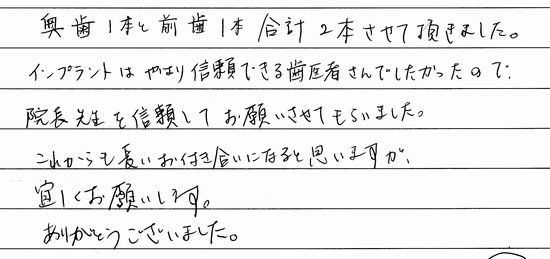 奥歯1本と前歯1本合計2本させて頂きました。
インプラントはやはり信頼できる歯医者さんでしたかったので、
院長先生を信頼してお願いさせてもらいました。
これからも長いお付き合いになると思いますが、
宜しくお願いします。
ありがとうございました。